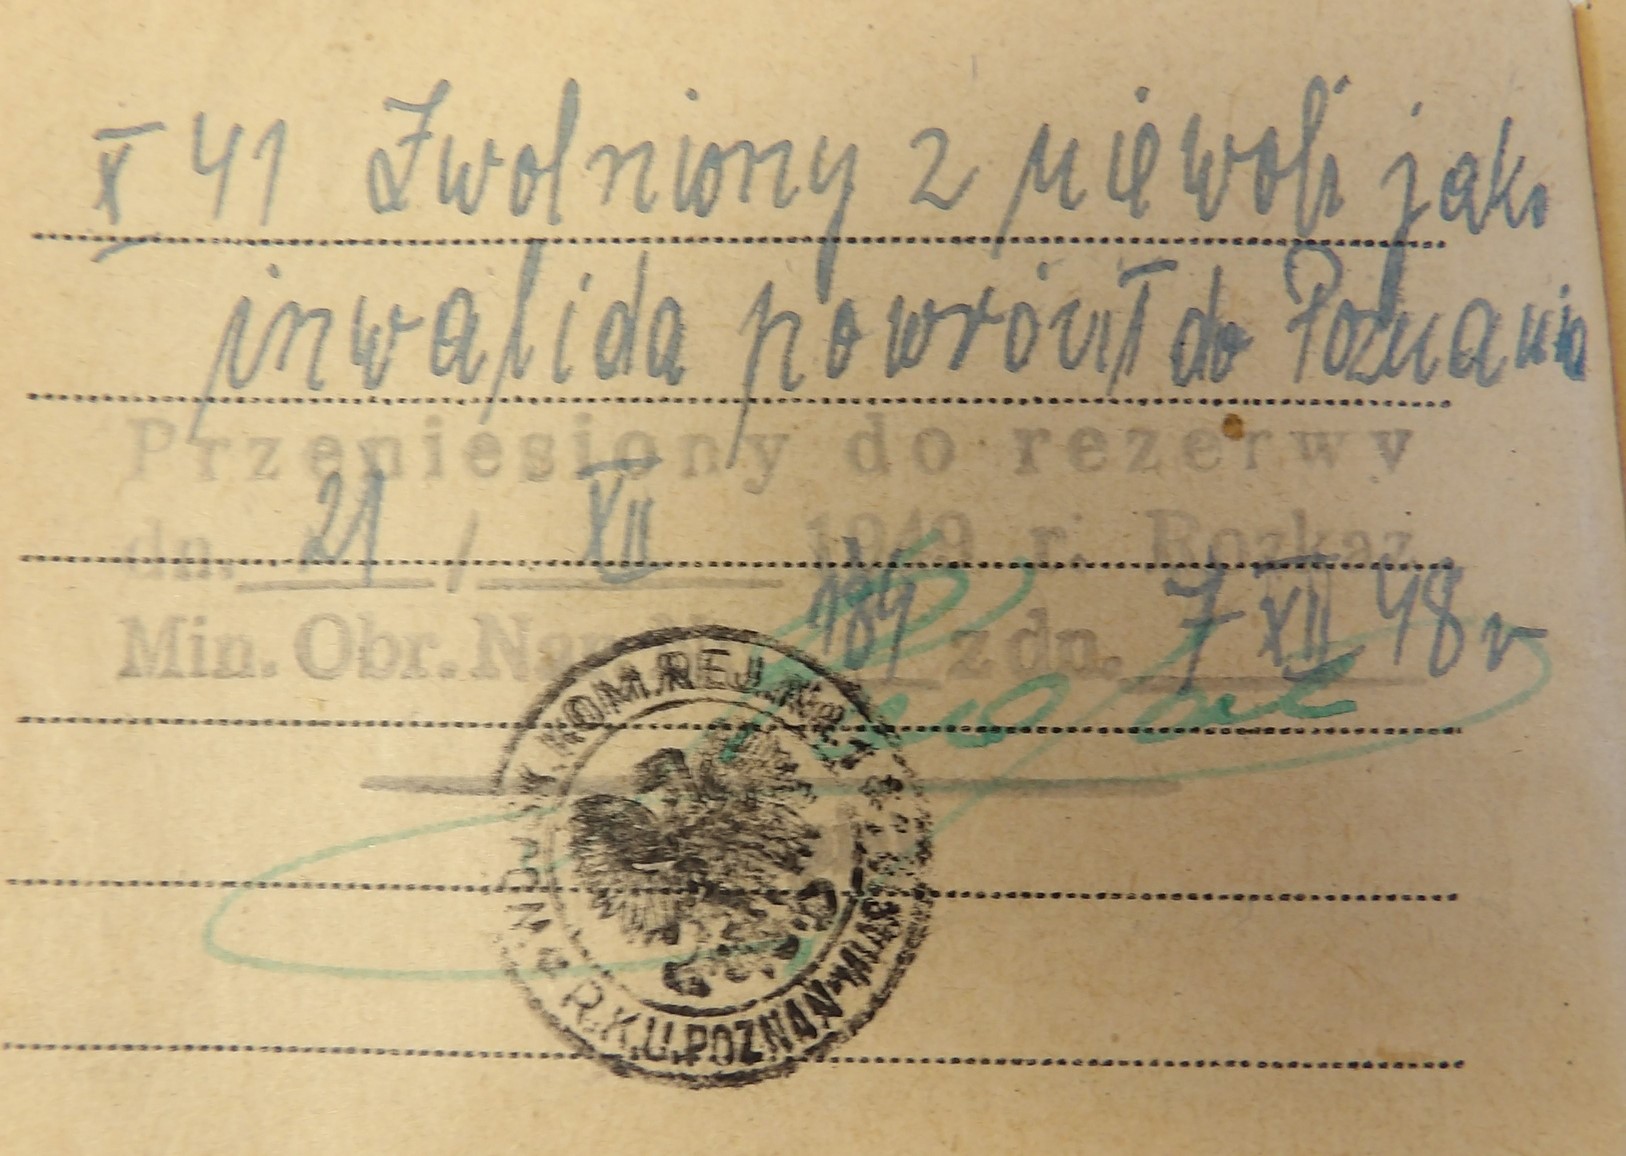 X 41 Zwolniony z niewoli jako
inwalida powrócił do Poznania
Przeniesiony do rezerwy
dn. 21 / XII 1949 r. Rozkaz
Min. Obr. Nar. 184 z dn. 7 XII 48 r
KOM. REJ.
R.K.U. POZNAŃ-MIASTO